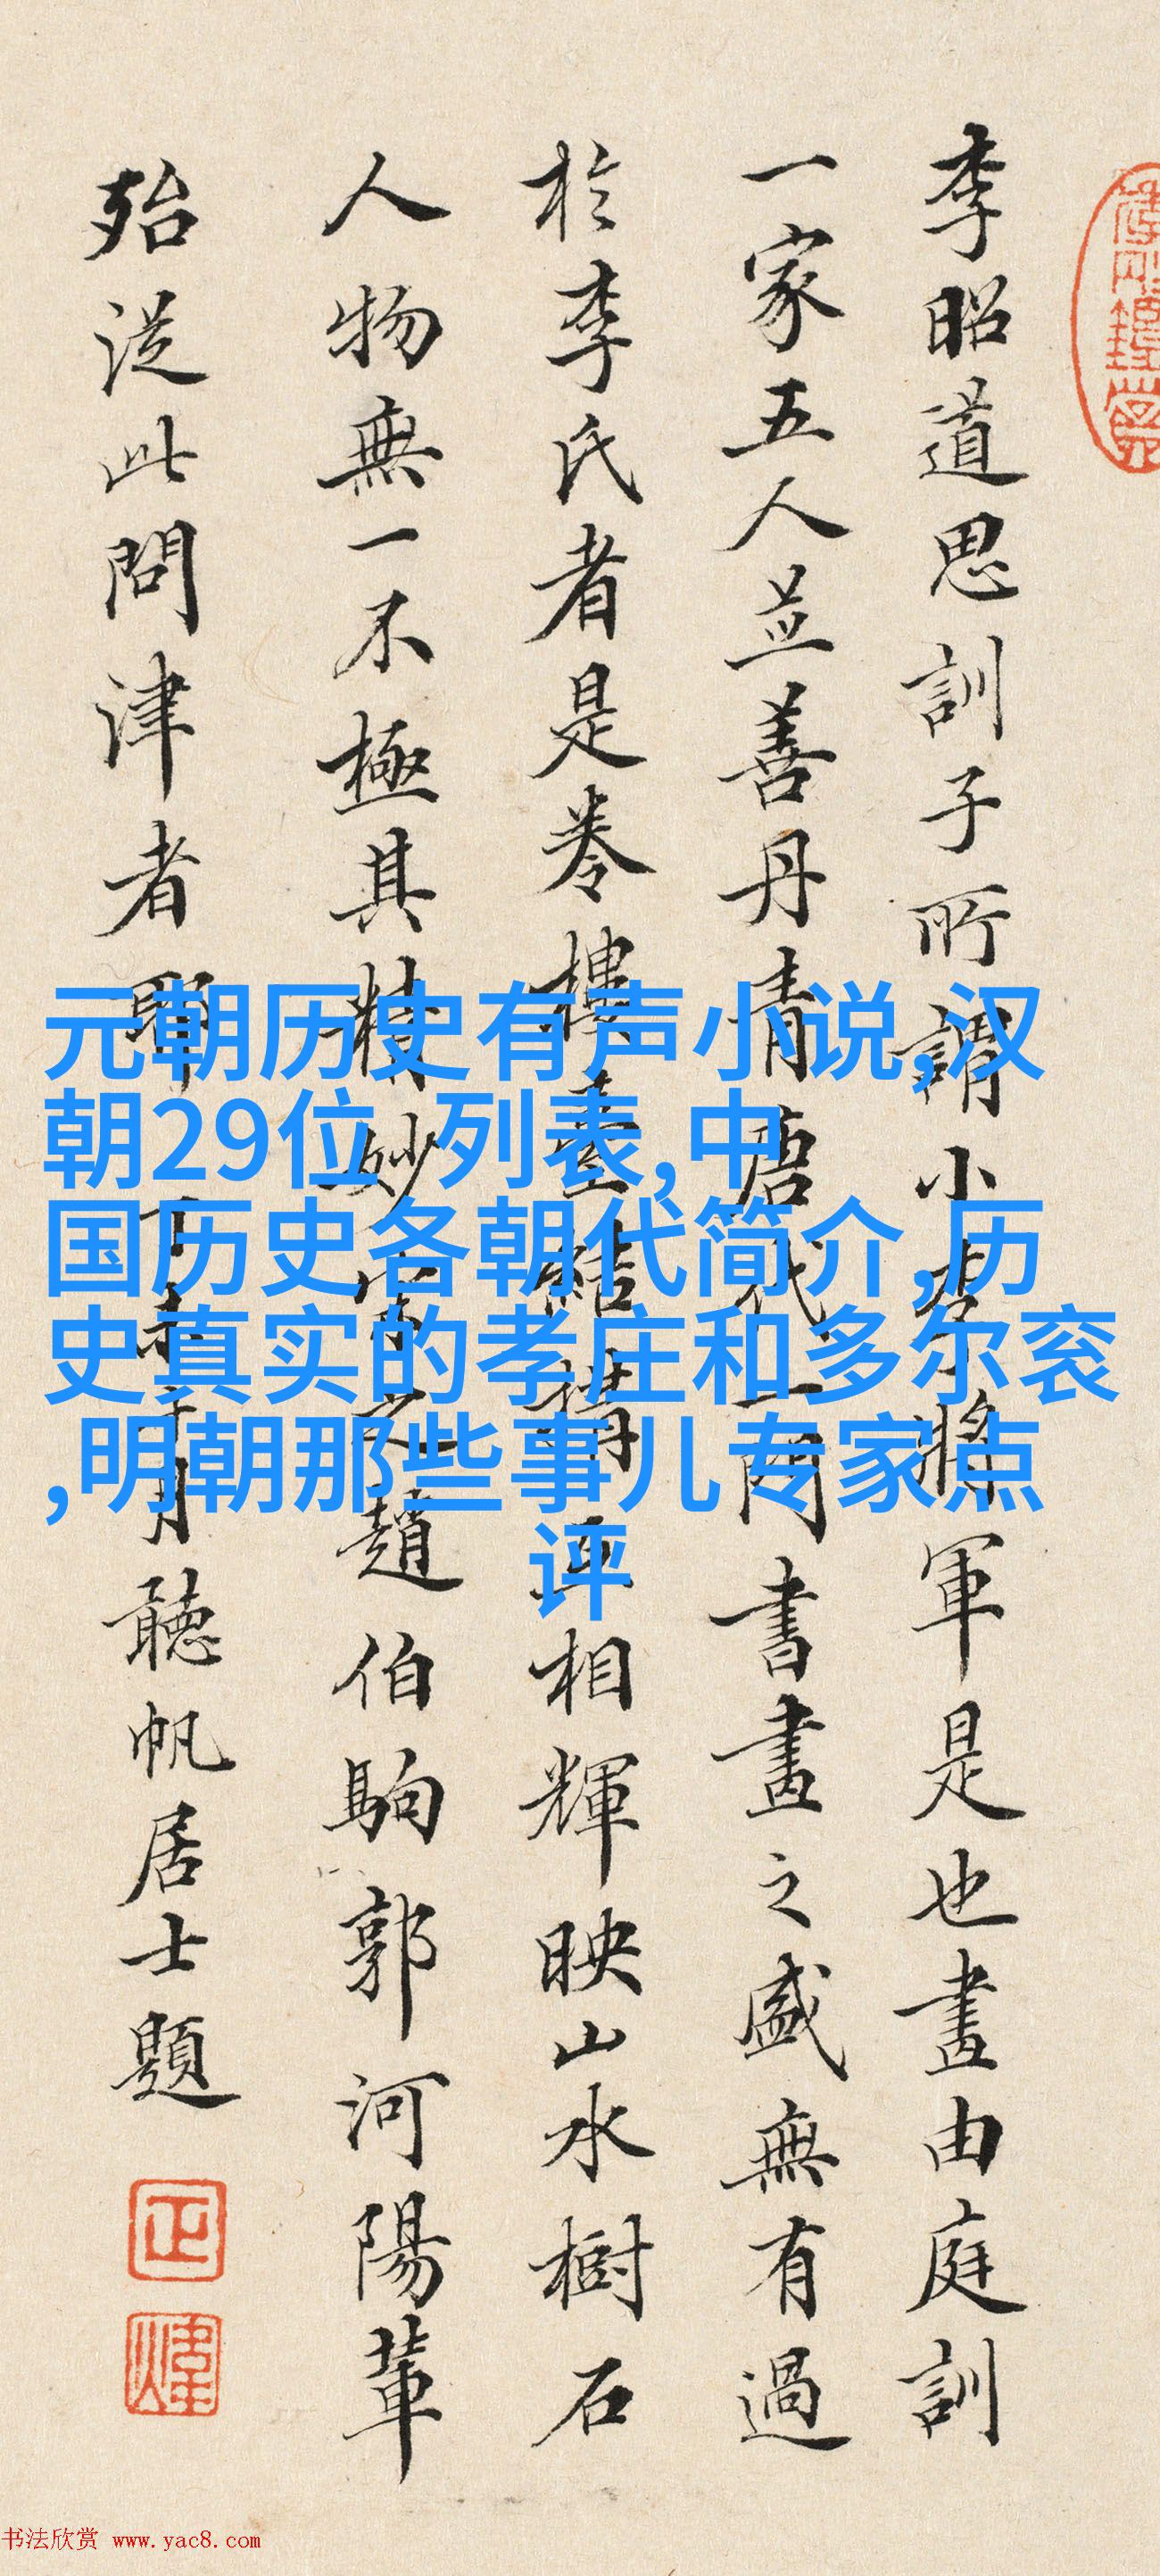 李昭道思訓子所謂小李將軍是也畫由庭訓
一家五人並善丹青唐代一門書畫之盛無有過
於李氏者是卷樓臺結構互相輝映山水樹石
人物無一不極其精妙宋之趙伯駒郭河陽輩
殆從此問津者耶丁未月聽帆居士題
正
煒
元朝历史有声小说,汉
朝29位 列表,中
国历史各朝代简介,历
史真实的孝庄和多尔衮
,明朝那些事儿专家点
评
书法欣赏 www.yac8.com